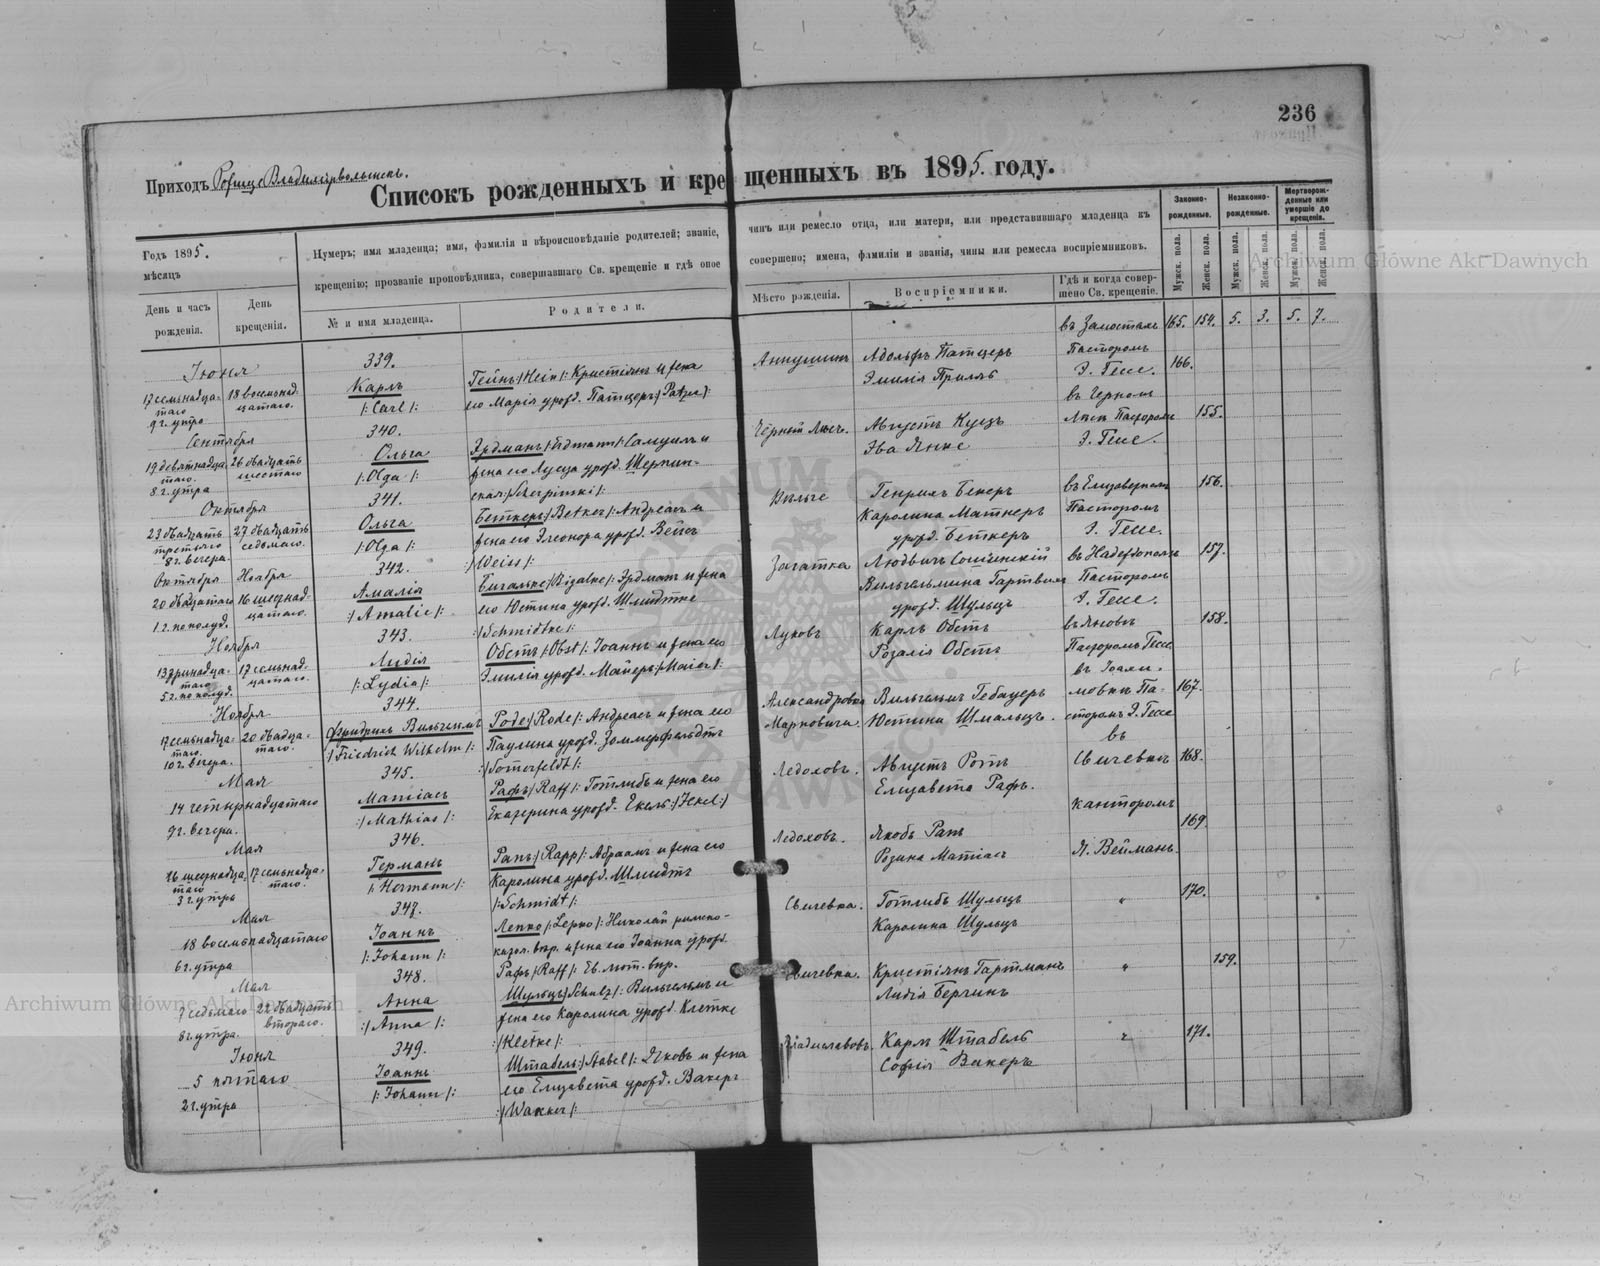 236
Приходъ Рожище Владимірволынск.
Списокъ рожденныхъ и крещенныхъ въ 1895. году.
Годъ 1895.
мѣсяцъ
День и часъ рожденія.
День крещенія.
Нумеръ; имя младенца; имя, фамилія и вѣроисповѣданіе родителей; званіе,
крещенію; прозваніе проповѣдника, совершавшаго Св. крещеніе и гдѣ оное
№ и имя младенца.
Родители.
чинъ или ремесло отца, или матери, или представившаго младенца къ
совершено; имена, фамиліи и званія, чины или ремесла воспріемниковъ.
Мѣсто рожденія.
Воспріемники.
Гдѣ и когда совершено Св. крещеніе.
Законно-рожденные.
Незаконно-рожденные.
Мертворож-денные или умершіе до крещенія.
Мужск. пола.
Женск. пола.
Мужск. пола.
Женск. пола.
Мужск. пола.
Женск. пола.
165. 154. 5. 3. 5. 7.
Іюня
17 семьнадца-
таго
9 г. утра
18 восемьнад-
цатаго.
339.
Карлъ
/: Carl :/
Гейнъ /: Hein :/ Кристіянъ и жена
его Марія урожд. Патцеръ
Адольфъ Патцеръ
Эмилія
въ Замостахъ
Пасторомъ
Э. Гессе.
166.
Сентября
19 девятнадца-
таго.
8 г. утра
26 двадцать
шестаго
340.
Ольга
/: Olga :/
Эрдманъ /: Erdmann :/ Самуилъ и
жена его Луиза урожд. Шерпин-
ская /: Scherpinski :/
Августъ Кунцъ
Эва Янке
Пасторомъ
Э. Гессе.
155.
Октября
23 двадцать
третьяго
8 г. вечера.
27 двадцать
седьмаго.
341.
Ольга
/: Olga :/
Беткеръ /: Betker :/ Андреасъ и
жена его Элеонора урожд. Вейсъ
:/ Weiss /:
Генрихъ Бекеръ
Каролина Матнеръ
урожд. Беткеръ
въ Елизаветполь
Пасторомъ
Э. Гессе.
156.
Октября
20 двадцатаго
1 г. по полуд.
Ноября
16 шестнад-
цатаго.
342.
Амалія
:/ Amalie /:
Бигальке /: Bigalke :/ Эрдманъ и жена
его Юстина урожд. Шмидтке
:/ Schmidtke /:
Загатка
Людвигъ
Вильгельмина Гартвихъ
урожд. Шульцъ
Пасторомъ
Э. Гессе.
157.
Ноября
13 тринадца-
таго
5 г. по полуд.
17 семьнад-
цатаго.
343.
Лидія
/: Lydia /:
Обстъ /: Obst :/ Іоаннъ и жена его
Эмилія урожд. Майеръ /: Maier :/
Луковъ
Карлъ Обстъ
Розалія Обстъ
въ Яновкѣ
Пасторомъ Гессе
158.
Ноября
17 семьнадца-
таго.
10 г. вечера.
20 двадца-
таго.
344.
Фридрихъ Вильгельмъ
:/ Friedrich Wilhelm /:
Роде /: Rode /: Андреасъ и жена его
Паулина урожд. Зоммерфельдтъ
:/ Somerfeldt /:
Александровка
Марковича.
Вильгельмъ Гебауеръ
Юстина Шмальцъ.
въ Іоахи-
мовкѣ Па-
сторомъ Э. Гессе
167.
Мая
14 четырнадцатаго
9 г. вечера.
345.
Матіасъ
:/ Mathias /:
Рафъ /: Raff /: Готлибъ и жена его
Екатерина урожд. Екель :/ Jekel :/
Ледоховъ.
Августъ Ротъ
Елизавета Рафъ.
въ
Свичевкѣ
канторомъ
168.
Мая
16 шестнадца-
таго
3 г. утра
17 семьнадца-
таго.
346.
Германъ
/: Hermann /:
Рапъ /: Rapp /: Абраамъ и жена его
Каролина урожд. Шмидтъ
/: Schmidt /:
Ледоховъ.
Якобъ Рапъ
Розина Матіасъ
Я. Вейманъ.
169.
Мая
18 восемьнадцатаго
6 г. утра
347.
Іоаннъ
/: Johann /:
Лепко /: Lepko /: Николай римско-
катол. вѣр. и жена его Іоанна урожд.
Рафъ /: Raff /: Ев. лют. вѣр.
Свичевка.
Готлибъ Шульцъ
Каролина Шульцъ
"
170.
Мая
7 седьмаго
8 г. утра.
22 двадцать
втораго.
348.
Анна
:/ Anna /:
Шульцъ /: Schulz /: Вильгельмъ и
жена его Каролина урожд. Клетке
:/ Kletke /:
Свичевка.
Кристіянъ Гартманъ
Лидія Бергинъ
"
159.
Іюня
5 пятаго
2 г. утра
349.
Іоаннъ
/: Johann /:
Штабель /: Stabel /: Яковъ и жена
его Елизавета урожд. Вакеръ
:/ Wacker /:
Владиславовъ.
Карлъ Штабель
Софія Вакеръ
"
171.
Archiwum Główne Akt Dawnych
Archiwum Główne Akt Dawnych